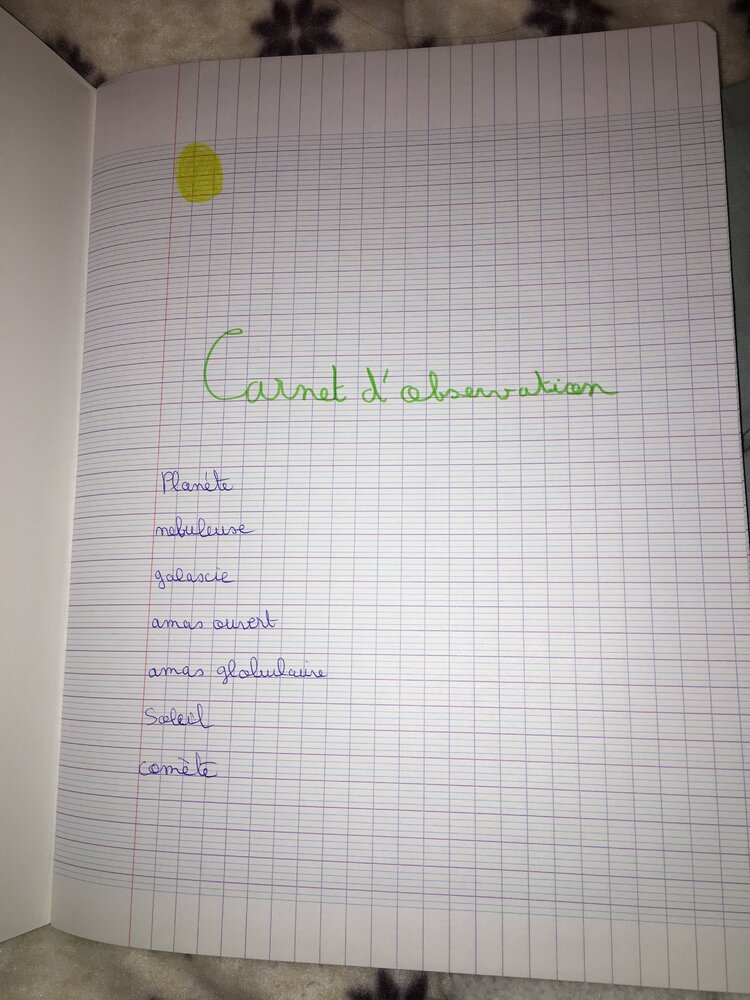 Carnet d'observation
Planète
nebuleuse
galaxie
amas ouvert
amas globulaire
Soleil
comète